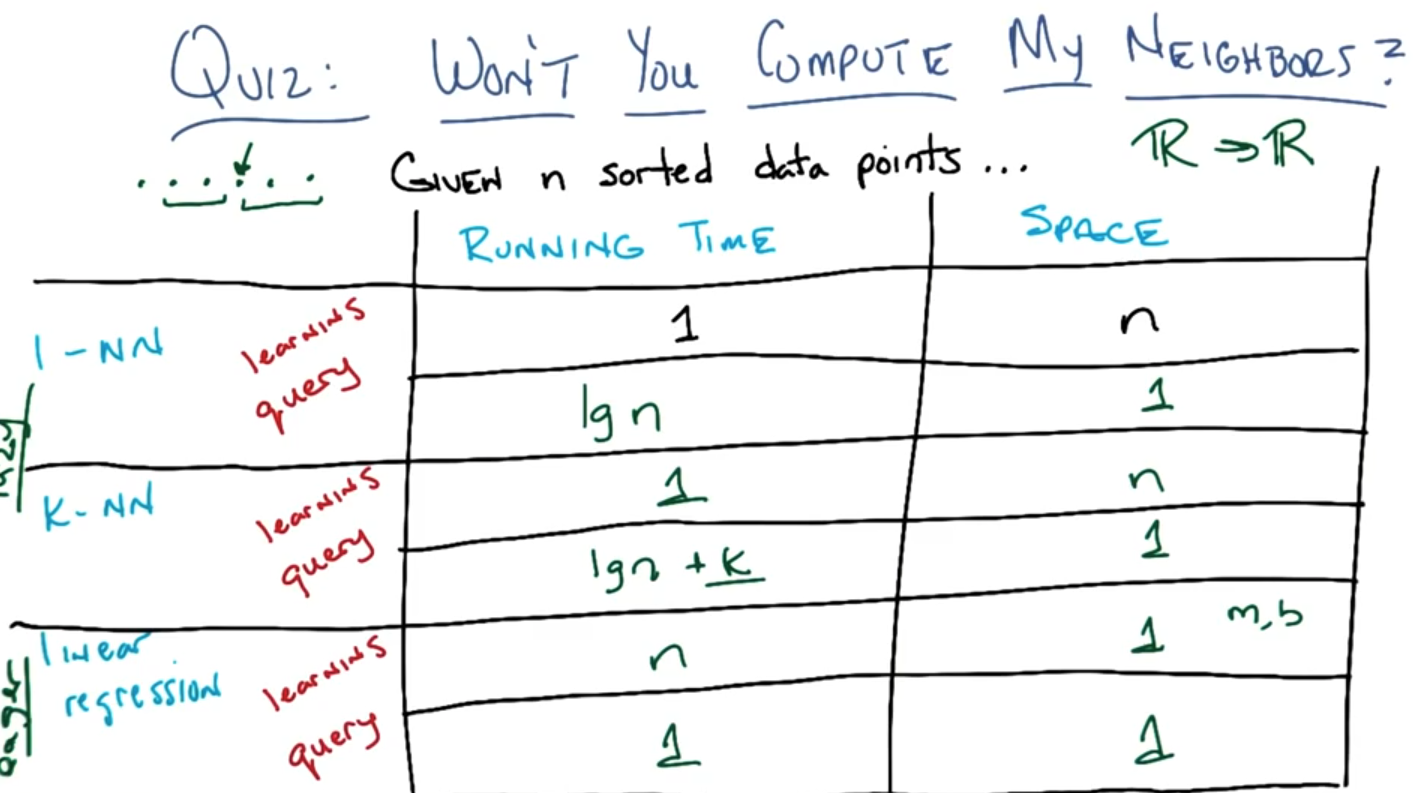 QUIZ: WON'T YOU COMPUTE MY NEIGHBORS?
GIVEN n sorted data points ... ℝ → ℝ
RUNNING TIME SPACE
1-NN learning 1 n
query lg n 1
lazy
K-NN learning 1 n
query lg n + K 1
linear regression learning n 1 m, b
query 1 1
eager